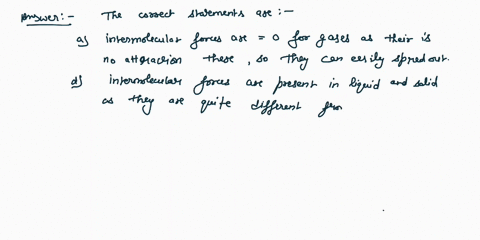 Answer:- The correct statements are :-
a) intermolecular forces are = 0 for gases as their is
no attraction these, so they can easily spread out.
d) intermolecular forces are present in liquid and solid
as they are quite different fro